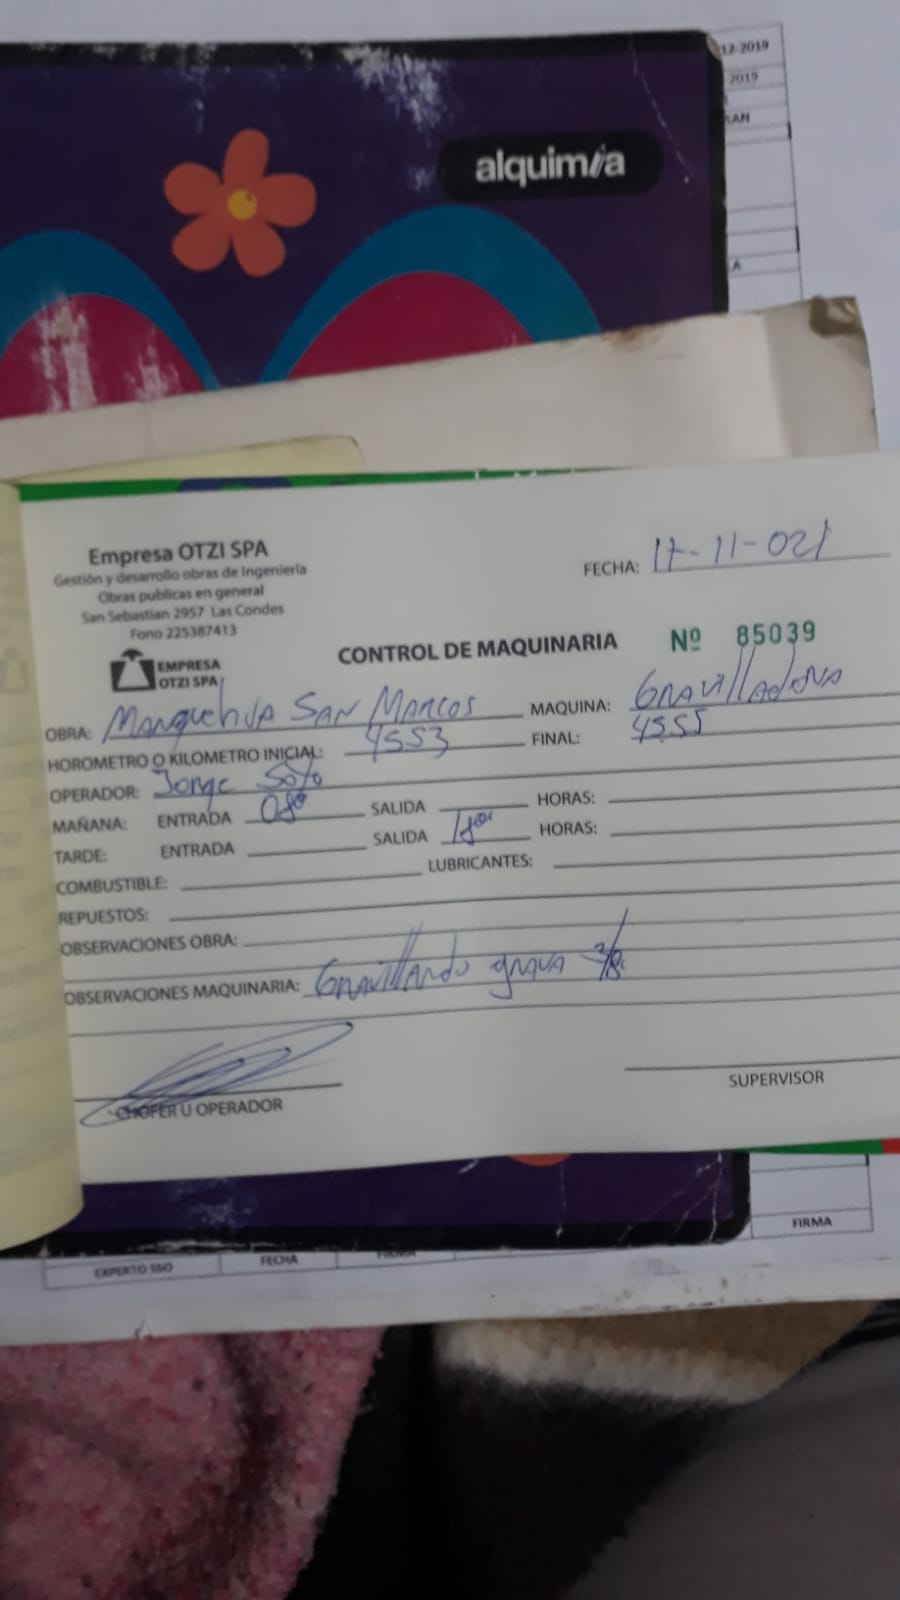 12-2019
2019
alquimia
Empresa OTZI SPA
Gestión y desarrollo obras de Ingeniería
Obras publicas en general
San Sebastian 2957 Las Condes
Fono 225387413
FECHA: 17-11-021
EMPRESA
OTZI SPA
CONTROL DE MAQUINARIA Nº 85039
OBRA: Manquehua SAN MARCOS MAQUINA: Gravilladora
HOROMETRO O KILOMETRO INICIAL: 4553 FINAL: 4555
OPERADOR: Jorge Soto
MAÑANA: ENTRADA 08⁰⁰ SALIDA HORAS:
TARDE: ENTRADA SALIDA 18⁰⁰ HORAS:
COMBUSTIBLE: LUBRICANTES:
REPUESTOS:
OBSERVACIONES OBRA:
OBSERVACIONES MAQUINARIA: Gravillando grava 3/8.
CHOFER U OPERADOR
SUPERVISOR
FIRMA
EXPERTO SSO FECHA FIRMA